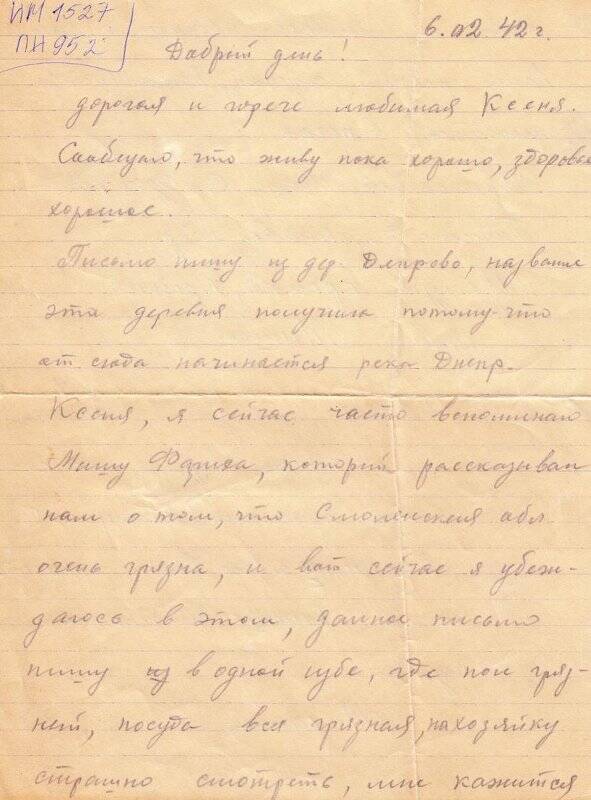 ИМ 1527
ПИ 952
6.02 42 г.
Добрый день!
дорогая и горече любимая Ксеня.
Сообщаю, что живу пока хорошо, здоровье
хорошое.
Письмо пишу из дер. Днпрово, название
эта деревня получила потому-что
от сюда начинается река Днепр.
Ксеня, я сейчас часто вспоминаю
Мишу который рассказывал
нам о том, что Смоленская обл
очень грязна, и вот сейчас я убеж-
даюсь в этом, данное письмо
пишу в одной избе, где пол гряз-
ней, посуда вся грязная, на хозяйку
страшно смотреть, мне кажится